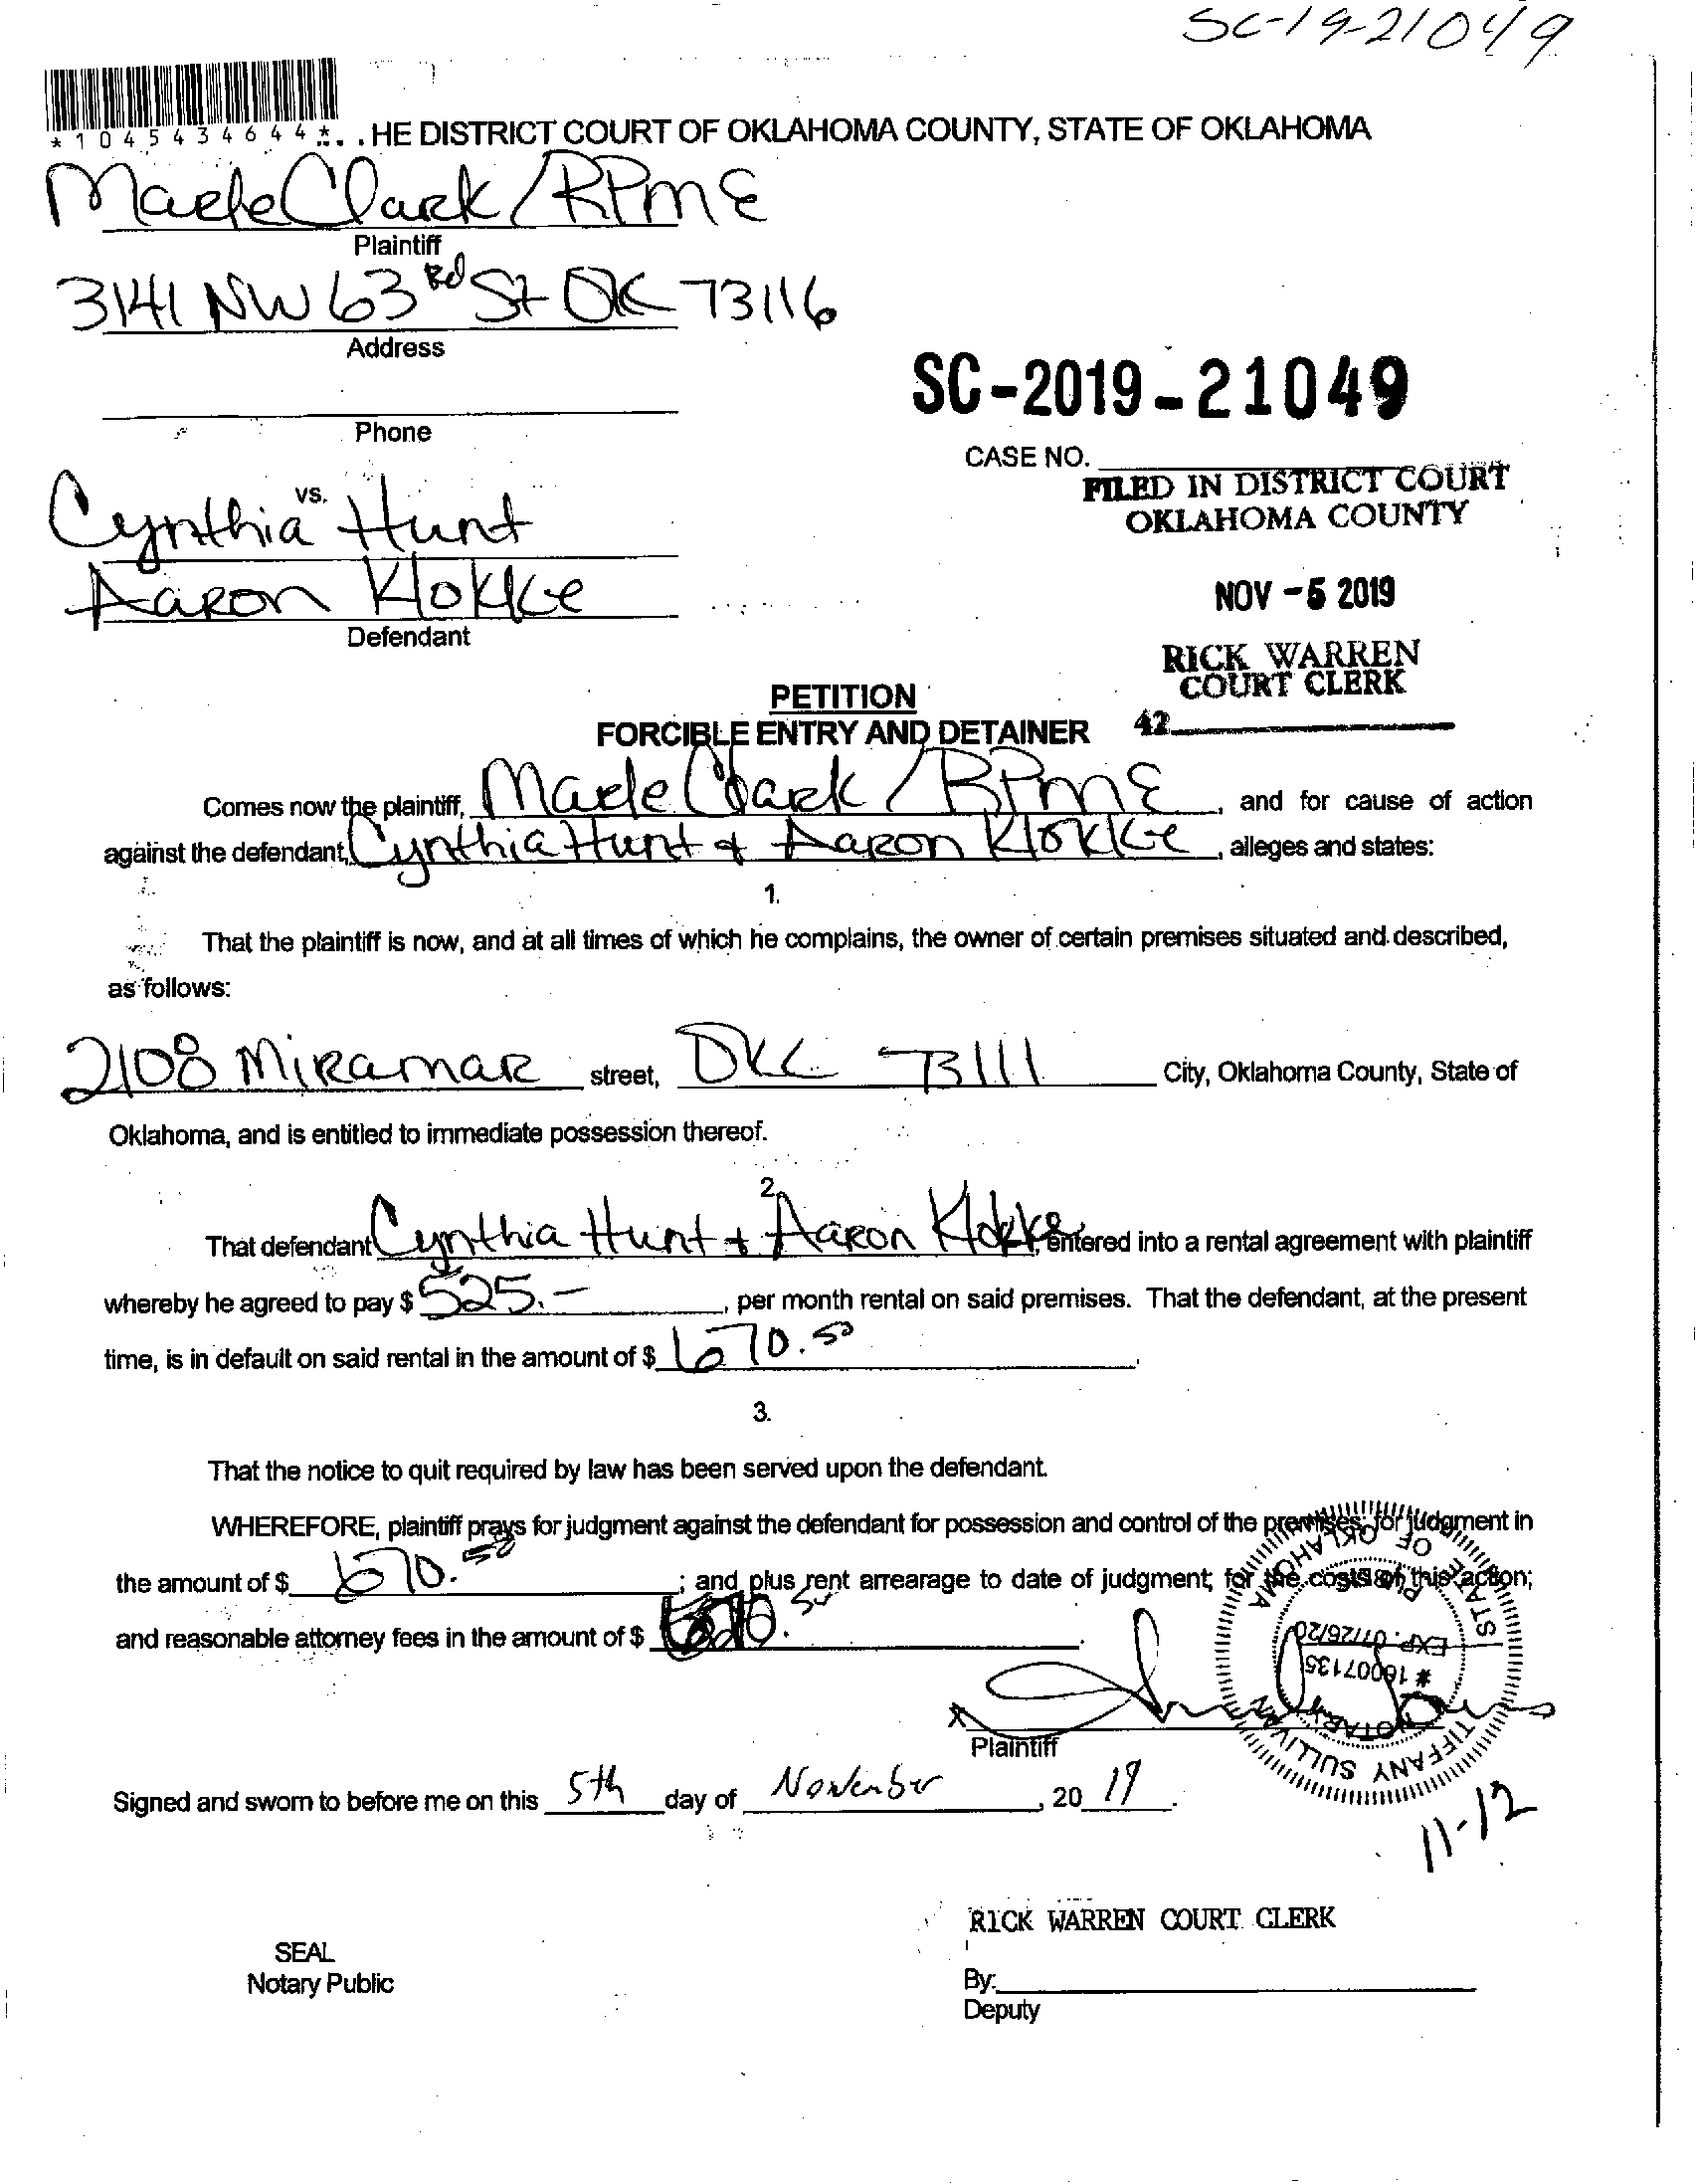 SC-19-21049
*1045434644*. . HE DISTRICT COURT OF OKLAHOMA COUNTY, STATE OF OKLAHOMA
Clark / RPME
Plaintiff
3141 NW 63 Rd St OK 73116
Address
SC-2019-21049
Phone
CASE NO.
FILED IN DISTRICT COURT
OKLAHOMA COUNTY
vs.
Cynthia Hunt
Aaron Klokke
Defendant
NOV -5 2019
RICK WARREN
COURT CLERK
42
PETITION
FORCIBLE ENTRY AND DETAINER
Comes now the plaintiff, Clark / RPME, and for cause of action
against the defendant, Cynthia Hunt & Aaron Klokke, alleges and states:
1.
That the plaintiff is now, and at all times of which he complains, the owner of certain premises situated and described,
as follows:
2108 Miramar street, OKC 73111 City, Oklahoma County, State of
Oklahoma, and is entitled to immediate possession thereof.
2.
That defendant Cynthia Hunt + Aaron Klokke, entered into a rental agreement with plaintiff
whereby he agreed to pay $ 525.-, per month rental on said premises. That the defendant, at the present
time, is in default on said rental in the amount of $ 670.50.
3.
That the notice to quit required by law has been served upon the defendant.
WHEREFORE, plaintiff prays for judgment against the defendant for possession and control of the premises; for judgment in
the amount of $ 670.50; and plus rent arrearage to date of judgment; for the costs of this action;
and reasonable attorney fees in the amount of $
X
Plaintiff
TIFFANY SULLIVAN
NOTARY
# 16007135
EXP. 07/26/20
STATE OF OKLAHOMA
Signed and sworn to before me on this 5th day of November, 20 19.
11-12
RICK WARREN COURT CLERK
SEAL
Notary Public
By:
Deputy